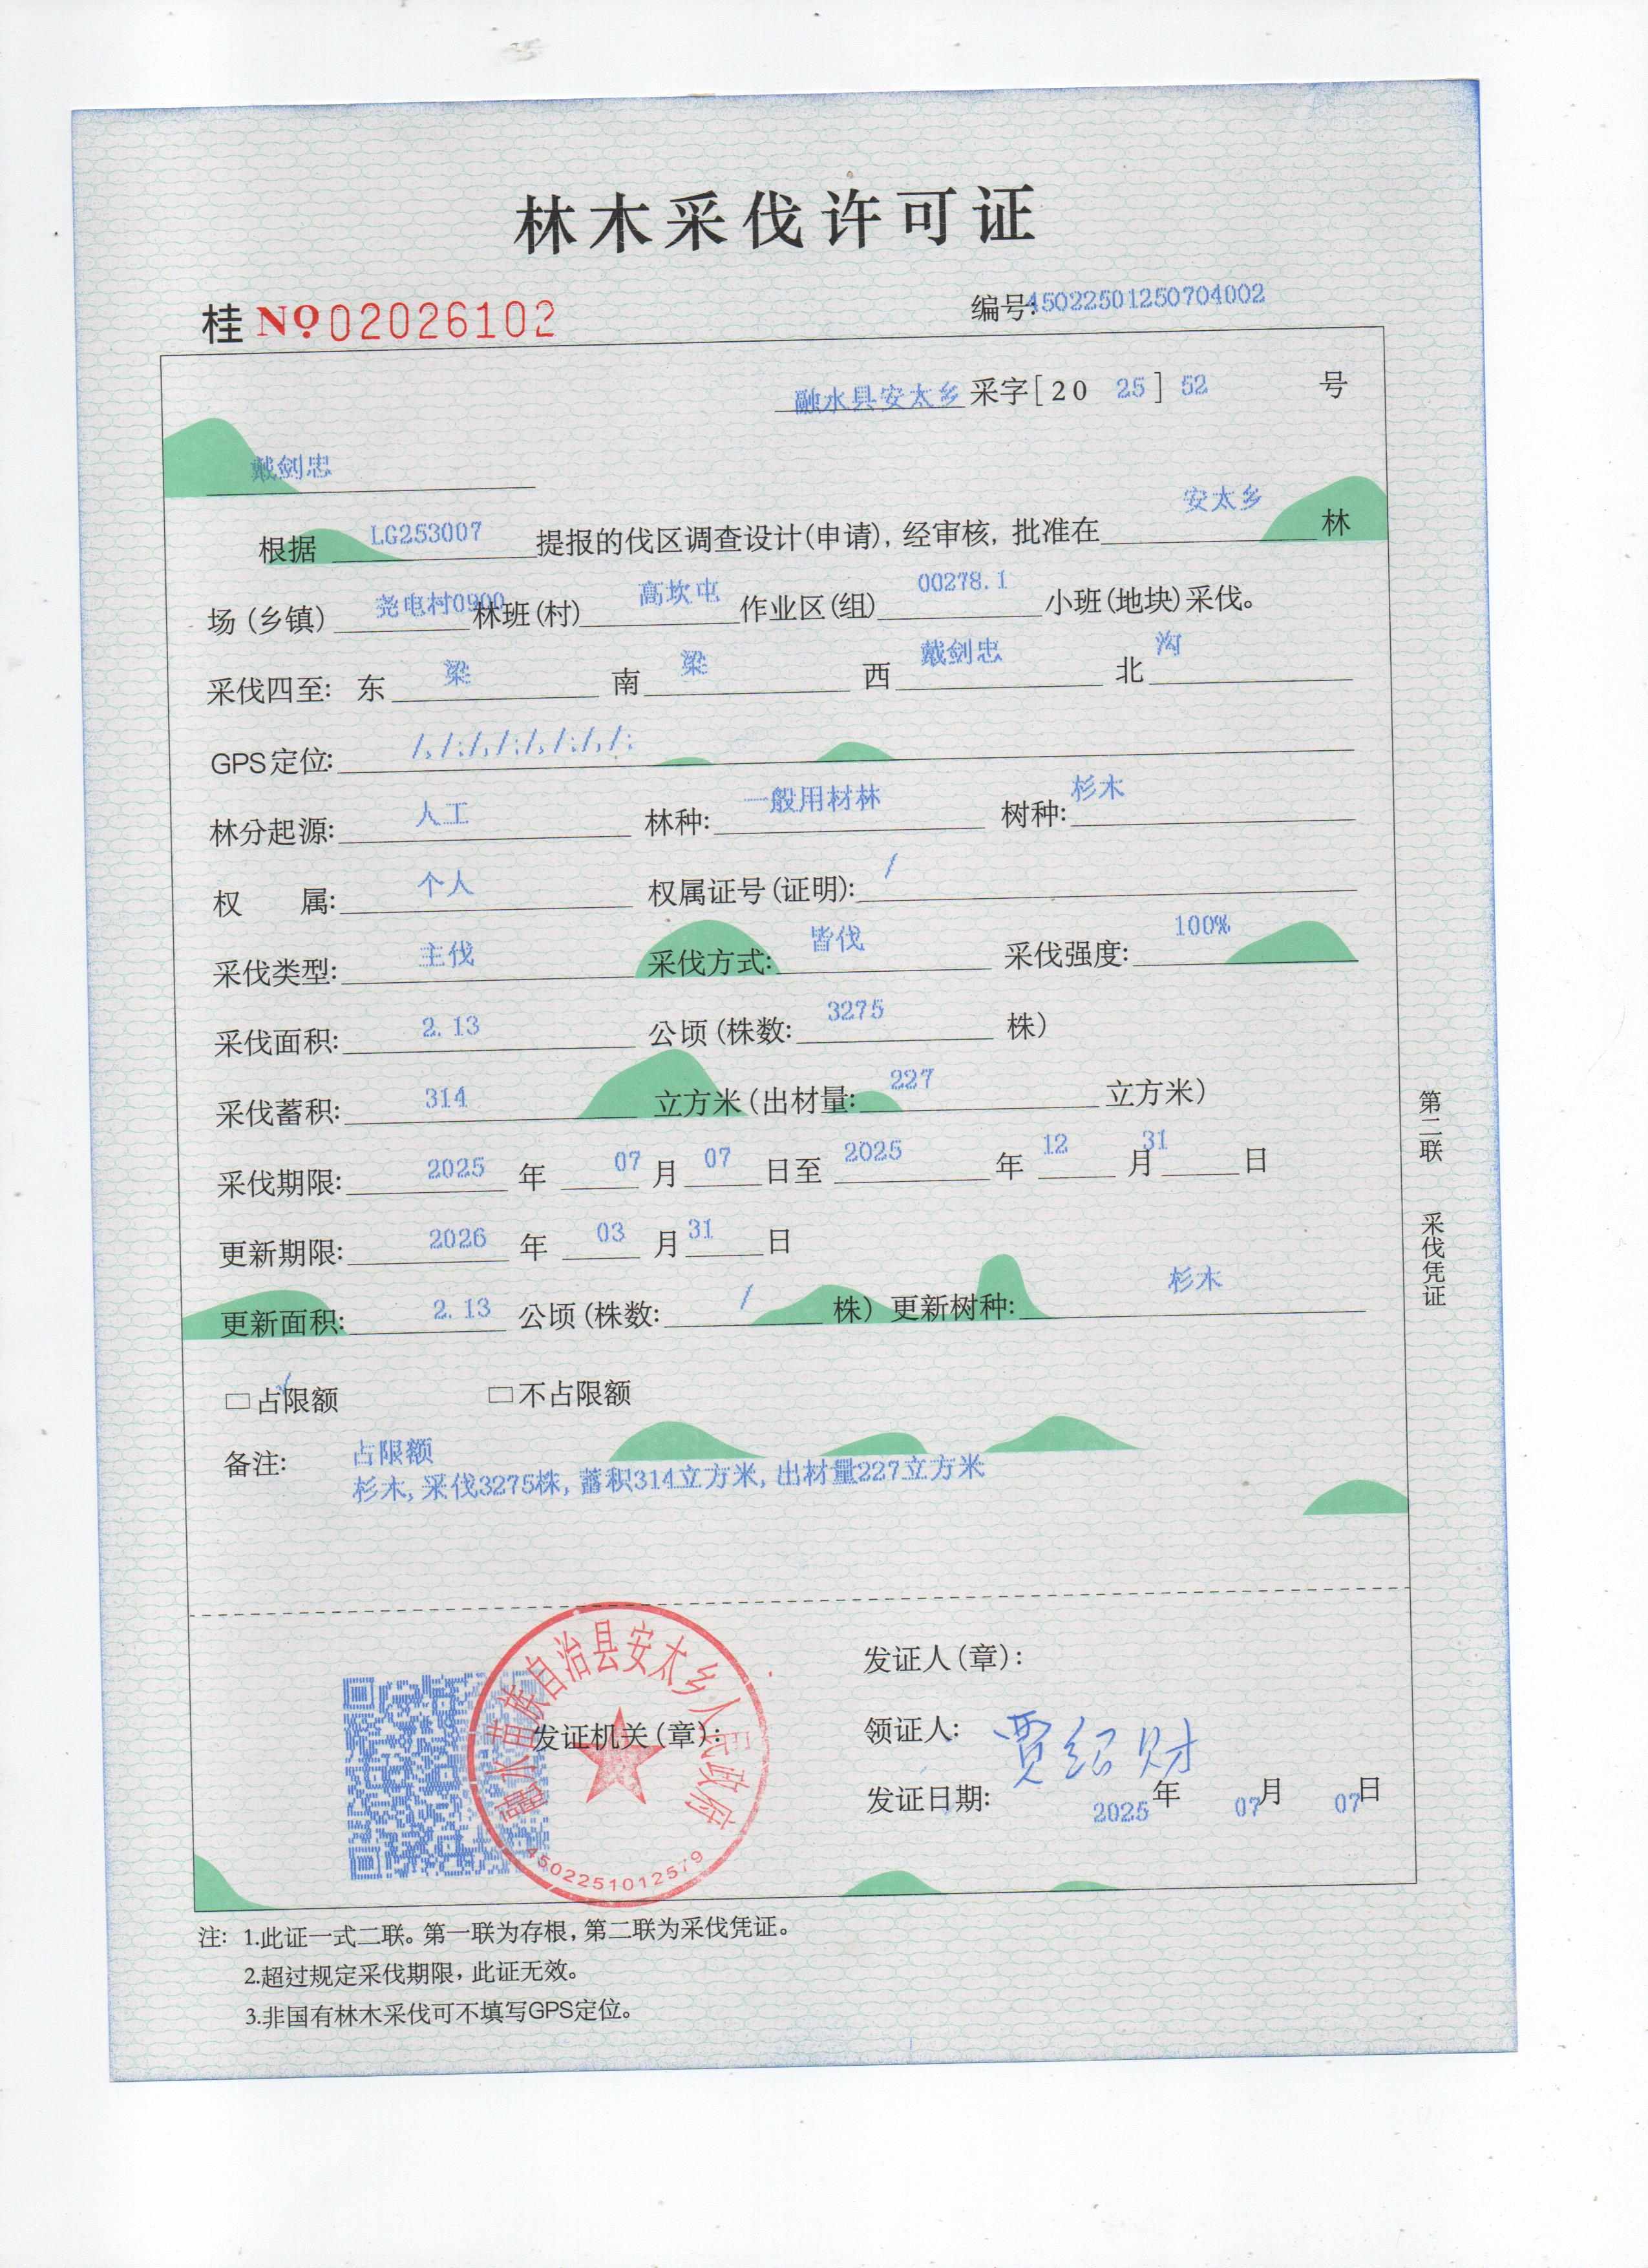 林木采伐许可证
桂 No 02026102
编号:45022501250704002
融水县安太乡 采字[20 25] 52 号
戴剑忠
根据 LG253007 提报的伐区调查设计(申请),经审核,批准在 安太乡 林
场(乡镇) 尧电村0900 林班(村) 高坎屯 作业区(组) 00278.1 小班(地块)采伐。
采伐四至: 东 梁 南 梁 西 戴剑忠 北 沟
GPS定位: /,/;/,/;/,/;/,/;
林分起源: 人工 林种: 一般用材林 树种: 杉木
权 属: 个人 权属证号(证明): /
采伐类型: 主伐 采伐方式: 皆伐 采伐强度: 100%
采伐面积: 2.13 公顷(株数: 3275 株)
采伐蓄积: 314 立方米(出材量: 227 立方米)
采伐期限: 2025 年 07 月 07 日至 2025 年 12 月 31 日
更新期限: 2026 年 03 月 31 日
更新面积: 2.13 公顷(株数: / 株) 更新树种: 杉木
□占限额 √ □不占限额
备注: 占限额
杉木,采伐3275株,蓄积314立方米,出材量227立方米
第二联 采伐凭证
融水苗族自治县安太乡人民政府
4502251012579
发证机关(章):
发证人(章):
领证人: 贾绍财
发证日期: 2025 年 07 月 07 日
注: 1.此证一式二联。第一联为存根,第二联为采伐凭证。
2.超过规定采伐期限,此证无效。
3.非国有林木采伐可不填写GPS定位。